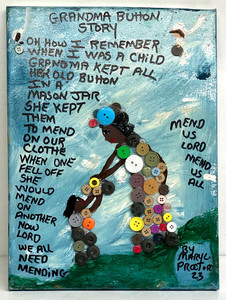 GRANDMA BUTTON
STORY
OH HOW I REMEMBER
WHEN I WAS A CHILD
GRANDMA KEPT ALL
HER OLD BUTTON
IN A
MASON JAR
SHE KEPT
THEM
TO MEND
ON OUR
CLOTHE
WHEN ONE
FELL OFF
SHE
WOULD
MEND
ON
ANOTHER
NOW
LORD
WE ALL
NEED
MENDING
MEND
US
LORD
MEND
US
ALL
BY
MARYL
PROCTOR
23